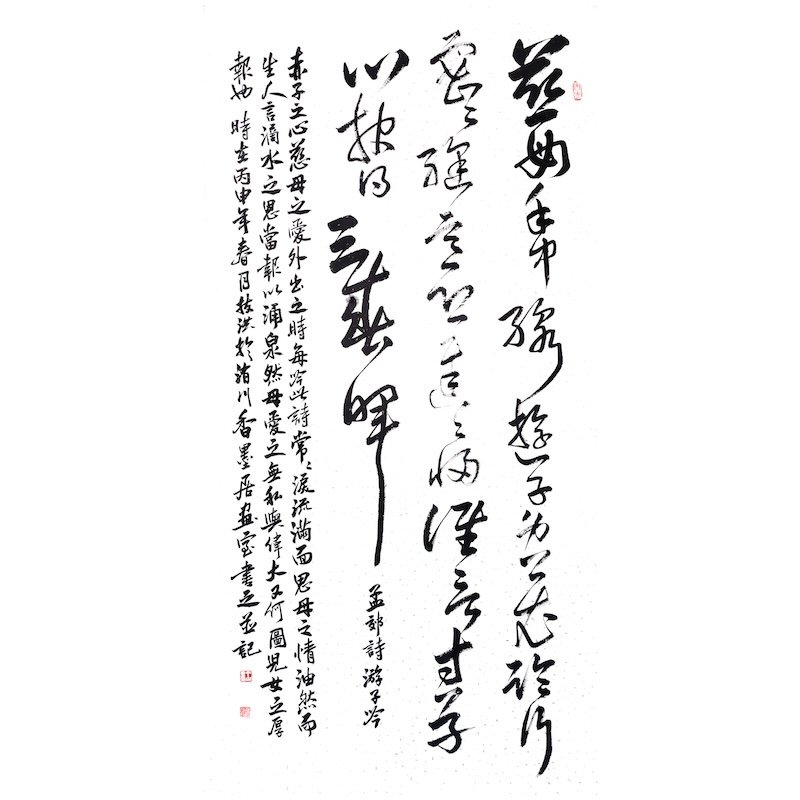 慈母手中線遊子身上衣臨行
密〻縫意恐遲〻歸誰言寸草
心報得三春暉
孟郊詩游子吟
赤子之心慈母之愛外出之時每吟此詩常〻淚流滿面思母之情油然而
生人言滴水之恩當報以涌泉然母愛之無私與偉大又何圖兒女之厚
報也時在丙申年春月於川香墨居畫室書之並記